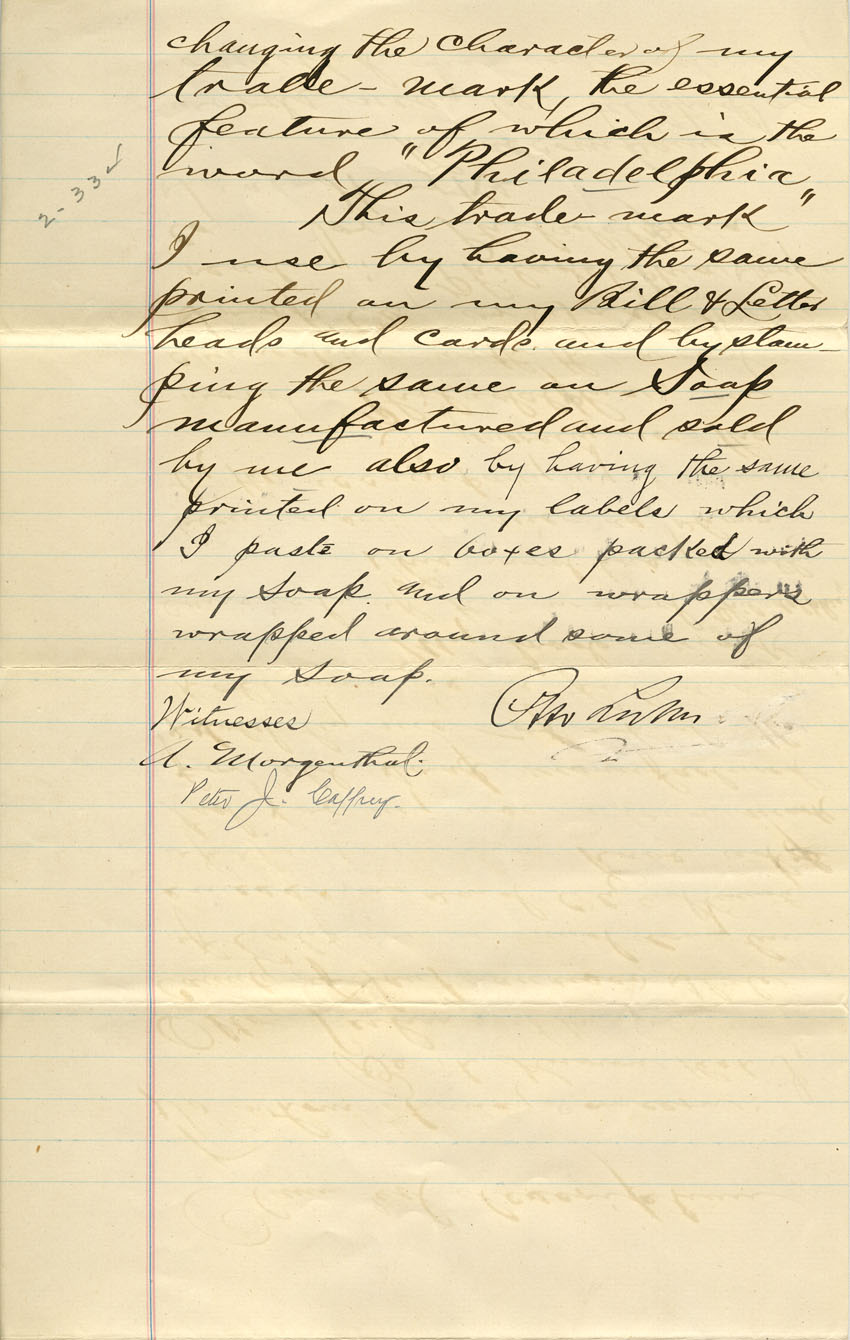 changing the character of my
trade-mark, the essential
feature of which is the
word, "Philadelphia"
This trade-mark
I use by having the same
printed on my Bill & Letter
heads and cards and by stam-
ping the same on Soap
manufactured and sold
by me also by having the same
printed on my labels which
I paste on boxes packed with
my soap and on wrappers
wrapped around some of
my soap.
2-33
Witnesses
Otto
A. Morgenthal.
Peter J. Caffrey.